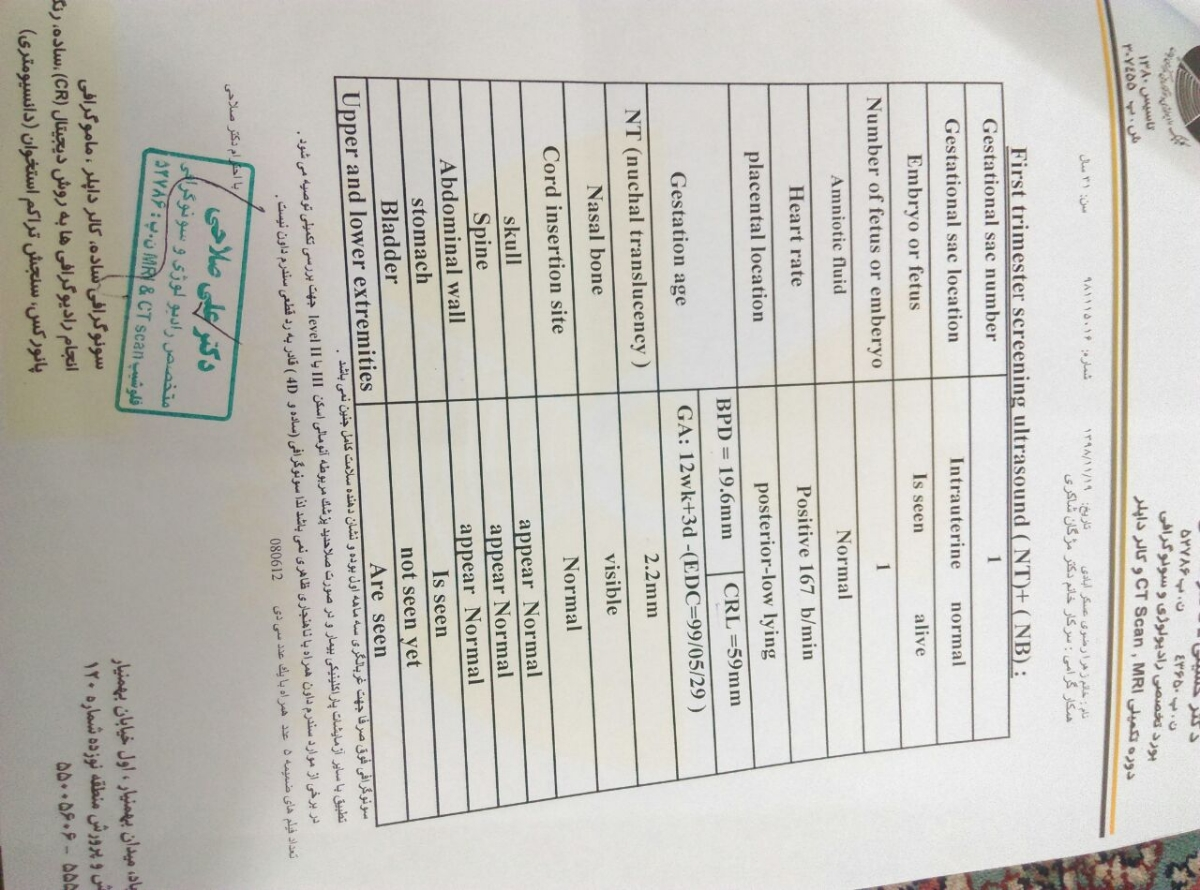 تاسیس ۱۳۸۰
ن.پ ۵۲۷۸۶
ن.پ ۴۳۶۵۰
بورد تخصصی رادیولوژی و سونوگرافی
دوره تکمیلی CT Scan , MRI و کالر داپلر
سن: ۳۱ سال
شماره: ۹۸۱۱۱۵۰۱۶
تاریخ: ۱۳۹۸/۱۱/۱۹
نام: خانم زهرا رضوی عسکر آبادی
همکار گرامی: سرکار خانم دکتر مژگان شاکری
First trimester screening ultrasound ( NT)+ ( NB) :
Gestational sac number 1
Gestational sac location Intrauterine normal
Embryo or fetus Is seen alive
Number of fetus or emberyo 1
Amniotic fluid Normal
Heart rate Positive 167 b/min
placental location posterior-low lying
Gestation age BPD = 19.6mm CRL =59mm
GA: 12wk+3d -(EDC=99/05/29 )
NT (nuchal translucency ) 2.2mm
Nasal bone visible
Cord insertion site Normal
skull appear Normal
Spine appear Normal
Abdominal wall appear Normal
stomach Is seen
Bladder not seen yet
Upper and lower extremities Are seen
سونوگرافی فوق صرفا جهت غربالگری سه ماهه اول بوده و نشان دهنده سلامت کامل جنین نمی باشد .
تطبیق با سایر آزمایشات پاراکلینیکی بیمار و در صورت صلاحدید پزشک مربوطه آنومالی اسکن level II یا III جهت بررسی تکمیلی توصیه می شود .
در برخی از موارد سندرم داون همراه با ناهنجاری ظاهری نمی باشد لذا سونوگرافی (ساده و 4D ) قادر به رد قطعی سندرم داون نیست .
تعداد فیلم های ضمیمه ۵ عدد همراه با یک عدد سی دی 080612
با احترام دکتر صلاحی
دکتر علی صلاحی
متخصص رادیولوژی و سونوگرافی
فلوشیپ MRI & CT scan ن.پ: ۵۲۷۸۶
سونوگرافی ساده، کالر داپلر ، ماموگرافی
انجام رادیوگرافی ها به روش دیجیتال (CR) ,ساده، رنگی
پانورکس، سنجش تراکم استخوان (دانسیومتری)
میدان بهمنیار ، اول خیابان بهمنیار
و پرورش منطقه نوزده شماره ۱۲۰
۵۵۰۰۵۶۰۶ - ۵۵۵